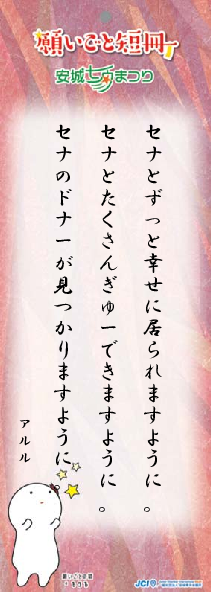 願いごと短冊
安城七夕まつり
セナとずっと幸せに居られますように。
セナとたくさんぎゅーできますように。
セナのドナーが見つかりますように
アルル
願いごと短冊
JCI